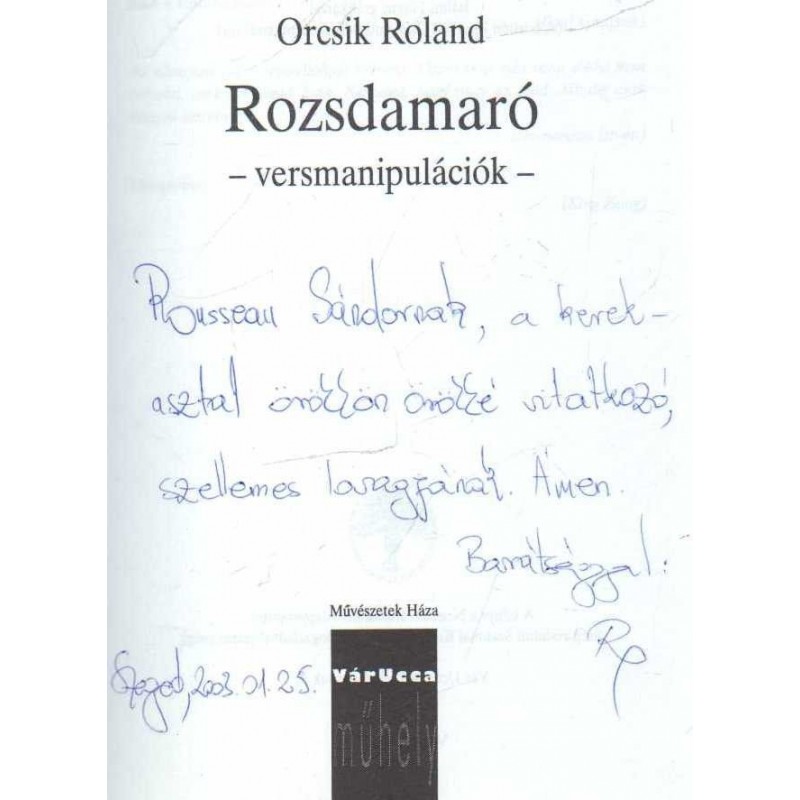 Orcsik Roland
Rozsdamaró
– versmanipulációk –
Rousseau Sándornak, a kerek-
asztal örökkön örökké vitatkozó,
szellemes lovagjának. Ámen.
Barátsággal:
Művészetek Háza
Szeged, 2003.01.25.
VárUcca
műhely